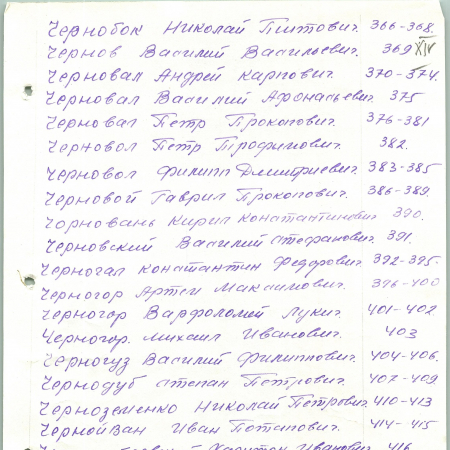 Чернобок Николай Титович. 366-368.
Чернов Василий Васильевич. 369 XIV
Черновал Андрей Карпович. 370-374.
Черновал Василий Афонасьевич. 375
Черновал Петр Прокопович. 376-381
Черновол Петр Трофимович. 382.
Черновол Филипп Дмитриевич. 383-385
Черновой Гаврил Прокопович. 386-389.
Чорновань Кирил Константинович 390.
Черновский Василий Стефанович. 391.
Черногал Константин Федорович. 392-395.
Черногор Артем Максимович. 396-400
Черногор Варфоломей Лукич. 401-402
Черногор. Михаил Иванович. 403
Черногуз Василий Филиппович. 404-406.
Чернодуб Степан Петрович. 407-409
Черноземенко Николай Петрович. 410-413
Чернойван Иван Потапович. 414-415
Харитон Иванович 416